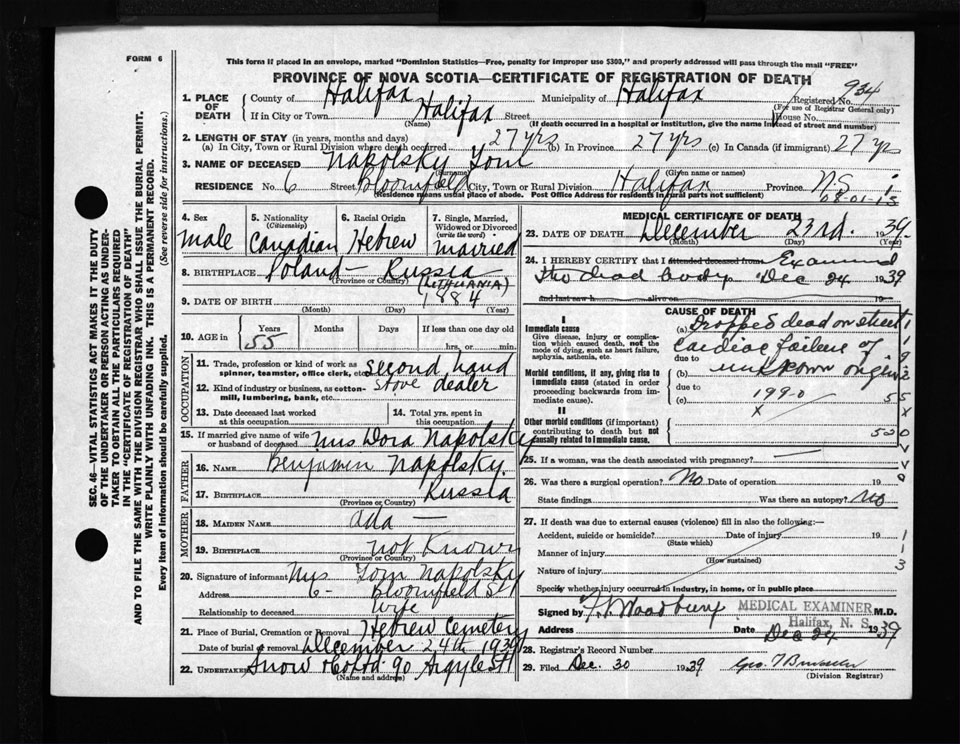 FORM 6
This form if placed in an envelope, marked "Dominion Statistics—Free, penalty for improper use $300," and properly addressed will pass through the mail "FREE"
PROVINCE OF NOVA SCOTIA—CERTIFICATE OF REGISTRATION OF DEATH
934
1. PLACE OF DEATH
County of Halifax Municipality of Halifax Registered No.
(For use of Registrar General only)
If in City or Town Halifax Street House No.
(Name) (If death occurred in a hospital or institution, give the name instead of street and number)
2. LENGTH OF STAY (in years, months and days)
(a) In City, Town or Rural Division where death occurred 27 yrs (b) In Province 27 yrs (c) In Canada (if immigrant) 27 yrs
3. NAME OF DECEASED Napolsky Tom
(Surname) (Given name or names)
RESIDENCE No. 6 Street Bloomfield City, Town or Rural Division Halifax Province N.S.
(Residence means usual place of abode. Post Office Address for residents in rural parts not sufficient)
08-01-13
4. Sex
male
5. Nationality
(Citizenship)
Canadian
6. Racial Origin
Hebrew
7. Single, Married, Widowed or Divorced
(write the word)
married
8. BIRTHPLACE Poland — Russia
(Province or Country) (LITHUANIA)
9. DATE OF BIRTH 1884
(Month) (Day) (Year)
10. AGE in Years Months Days If less than one day old
55 hrs. or min.
OCCUPATION
11. Trade, profession or kind of work as spinner, teamster, office clerk, etc. second hand
12. Kind of industry or business, as cotton-mill, lumbering, bank, etc. stove dealer
13. Date deceased last worked at this occupation
14. Total yrs. spent in this occupation
15. If married give name of wife or husband of deceased Mrs Dora Napolsky
FATHER
16. NAME Benjamin Napolsky.
17. BIRTHPLACE Russia
(Province or Country)
MOTHER
18. MAIDEN NAME Ada —
19. BIRTHPLACE not Known
(Province or Country)
20. Signature of informant Mrs Tom Napolsky
Address 6- Bloomfield St
Relationship to deceased Wife
21. Place of Burial, Cremation or Removal Hebrew Cemetery
Date of burial or removal December 24th 1939
22. UNDERTAKER Snow & Co Ltd. 90 Argyle St
(Name and address)
MEDICAL CERTIFICATE OF DEATH
23. DATE OF DEATH December 23rd. 1939
(Month) (Day) (Year)
24. I HEREBY CERTIFY that I attended deceased from Examined
the dead body Dec 24 1939
and last saw h alive on 19
CAUSE OF DEATH
I
Immediate cause
Give disease, injury or complication which caused death, not the mode of dying, such as heart failure, asphyxia, asthenia, etc.
(a) Dropped dead on street
Cardiac failure of
due to
Morbid conditions, if any, giving rise to immediate cause (stated in order proceeding backwards from immediate cause).
(b) unknown origin
due to
(c) 199-0
x
II
Other morbid conditions (if important) contributing to death but not causally related to immediate cause.
25. If a woman, was the death associated with pregnancy? —
26. Was there a surgical operation? No Date of operation 19
State findings Was there an autopsy? No
27. If death was due to external causes (violence) fill in also the following:—
Accident, suicide or homicide? Date of injury 19
(State which)
Manner of injury
(How sustained)
Nature of injury
Specify whether injury occurred in industry, in home, or in public place
Signed by Woodbury M.D.
MEDICAL EXAMINER
Halifax, N. S.
Address Date Dec 24 1939
28. Registrar's Record Number
29. Filed Dec. 30 1939
(Division Registrar)
SEC. 46—VITAL STATISTICS ACT MAKES IT THE DUTY
OF THE UNDERTAKER OR PERSON ACTING AS UNDER-
TAKER TO OBTAIN ALL THE PARTICULARS REQUIRED
IN THE "CERTIFICATE OF REGISTRATION OF DEATH"
AND TO FILE THE SAME WITH THE DIVISION REGISTRAR WHO SHALL ISSUE THE BURIAL PERMIT.
WRITE PLAINLY WITH UNFADING INK. THIS IS A PERMANENT RECORD.
Every item of information should be carefully supplied. (See reverse side for instructions.)